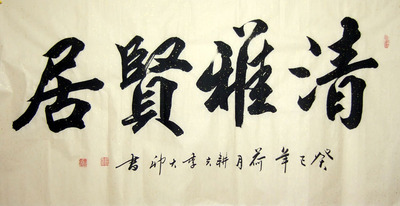 清雅賢居
癸巳年荷月耕夫李大書